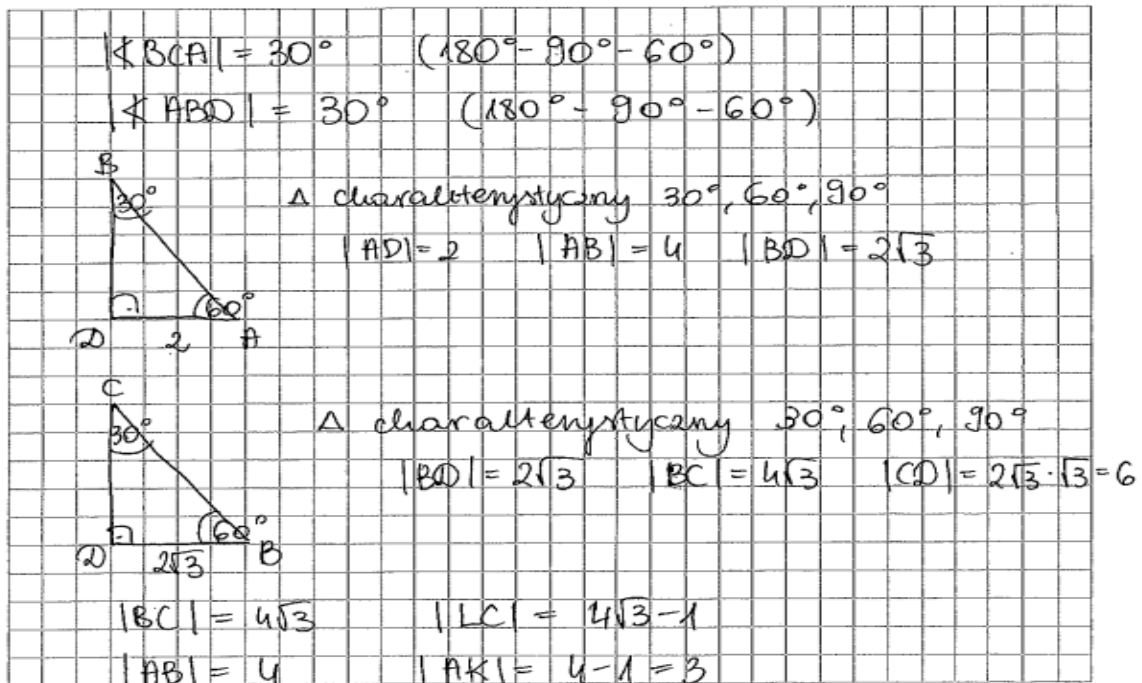 |∢BCA| = 30° (180° - 90° - 60°)
|∢ABD| = 30° (180° - 90° - 60°)
B
30°
△ charakterystyczny 30°, 60°, 90°
|AD| = 2 |AB| = 4 |BD| = 2√3
60°
D 2 A
C
30°
△ charakterystyczny 30°, 60°, 90°
|BD| = 2√3 |BC| = 4√3 |CD| = 2√3·√3 = 6
60°
D 2√3 B
|BC| = 4√3 |LC| = 4√3 - 1
|AB| = 4 |AK| = 4 - 1 = 3